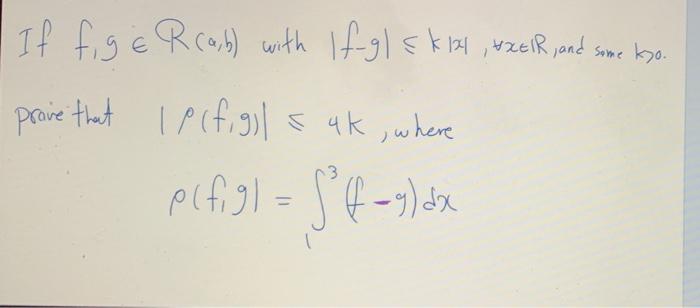 If f,g ∈ R(a,b) with |f-g| ≤ k|x| , ∀x∈ℝ, and some k>0.
prove that |ρ(f,g)| ≤ 4k , where
ρ(f,g) = ∫₁³ (f-g) dx